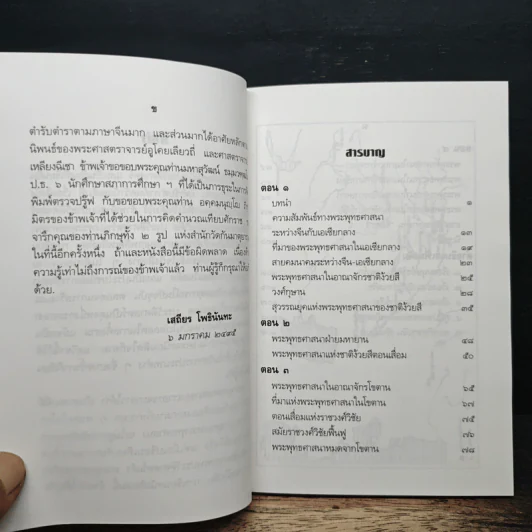 ข
ตำรับตำราตามภาษาจีนมาก และส่วนมากได้อาศัยหลักจาก
นิพนธ์ของพระศาสตราจารย์อูโคยเลียวถี่ และศาสตราจาร
เหลียงฉีเชา ข้าพเจ้าขอขอบพระคุณท่านมหาสุวัฒน์
ป.ธ. ๖ นักศึกษาสภาการศึกษา ฯ ที่ได้เป็นภาระธุระในการ
พิมพ์ตรวจปรู๊ฟ กับขอขอบพระคุณท่าน
มิตรของข้าพเจ้าที่ได้ช่วยในการคิดคำนวณเทียบศักราช
จารึกคุณของท่านภิกษุทั้ง ๒ รูป แห่งสำนักวัดกันมาตุยาราม
ในที่นี้อีกครั้งหนึ่ง ถ้าและหนังสือนี้มีข้อผิดพลาด เนื่องด้วย
ความรู้เท่าไม่ถึงการณ์ของข้าพเจ้าแล้ว ท่านผู้รู้ก็กรุณาให้อภัย
ด้วย.
เสถียร โพธินันทะ
๖ มกราคม ๒๔๙๕
สารบาญ
ตอน ๑
บทนำ ๑
ความสัมพันธ์ทางพระพุทธศาสนา
ระหว่างจีนกับเอเซียกลาง ๑๓
ที่มาของพระพุทธศาสนาในเอเซียกลาง ๑๙
สายคมนาคมระหว่างจีน-เอเซียกลาง ๒๓
พระพุทธศาสนาในอาณาจักรชาติง้วยสี ๒๕
วงศ์กุษาน ๒๘
สุวรรณยุคแห่งพระพุทธศาสนาของชาติง้วยสี ๓๕
ตอน ๒
พระพุทธศาสนาฝ่ายมหายาน ๔๘
พระพุทธศาสนาแห่งชาติง้วยสีตอนเสื่อม ๕๐
ตอน ๓
พระพุทธศาสนาในอาณาจักรโขตาน ๖๕
ที่มาแห่งพระพุทธศาสนาในโขตาน ๖๗
ตอนเสื่อมแห่งราชวงศ์วิชัย ๗๕
สมัยราชวงศ์วิชัยฟื้นฟู ๗๖
พระพุทธศาสนาหมดจากโขตาน ๗๘